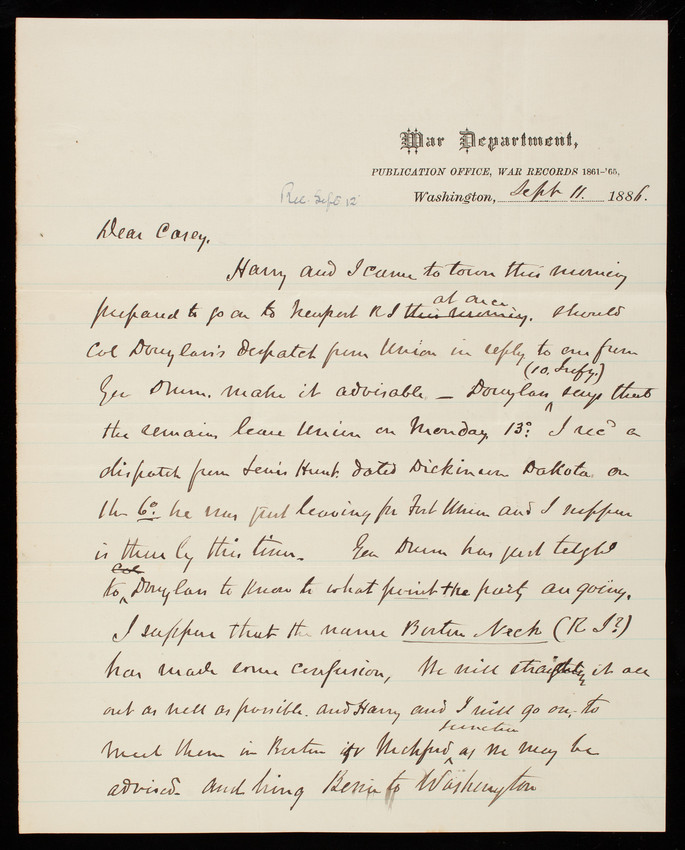 War Department,
PUBLICATION OFFICE, WAR RECORDS 1861–'65,
Washington, Sept 11. 1886.
Rec. Sept 12
Dear Casey.
Harry and I came to town this morning
at once
prepared to go on to Newport R I this morning. should
Col Douglass's despatch from Union in reply to one from
(10. Infy.)
Gen Drum. make it advisable – Douglass says that
the remains leave Union on Monday 13°. I recd a
dispatch from Lewis Hunt. dated Dickinson Dakota on
the 6° he was just leaving for Fort Union and I suppose
is there by this time – Gen Drum has just telghd
Col
to Douglass to know to what point the party are going.
I suppose that the name Boston Neck (R I?)
has made some confusion, We will straighten it all
out as well as possible. and Harry and I will go on, to
junction
meet them in Boston or Wickford as we may be
advised – and bring to Washington